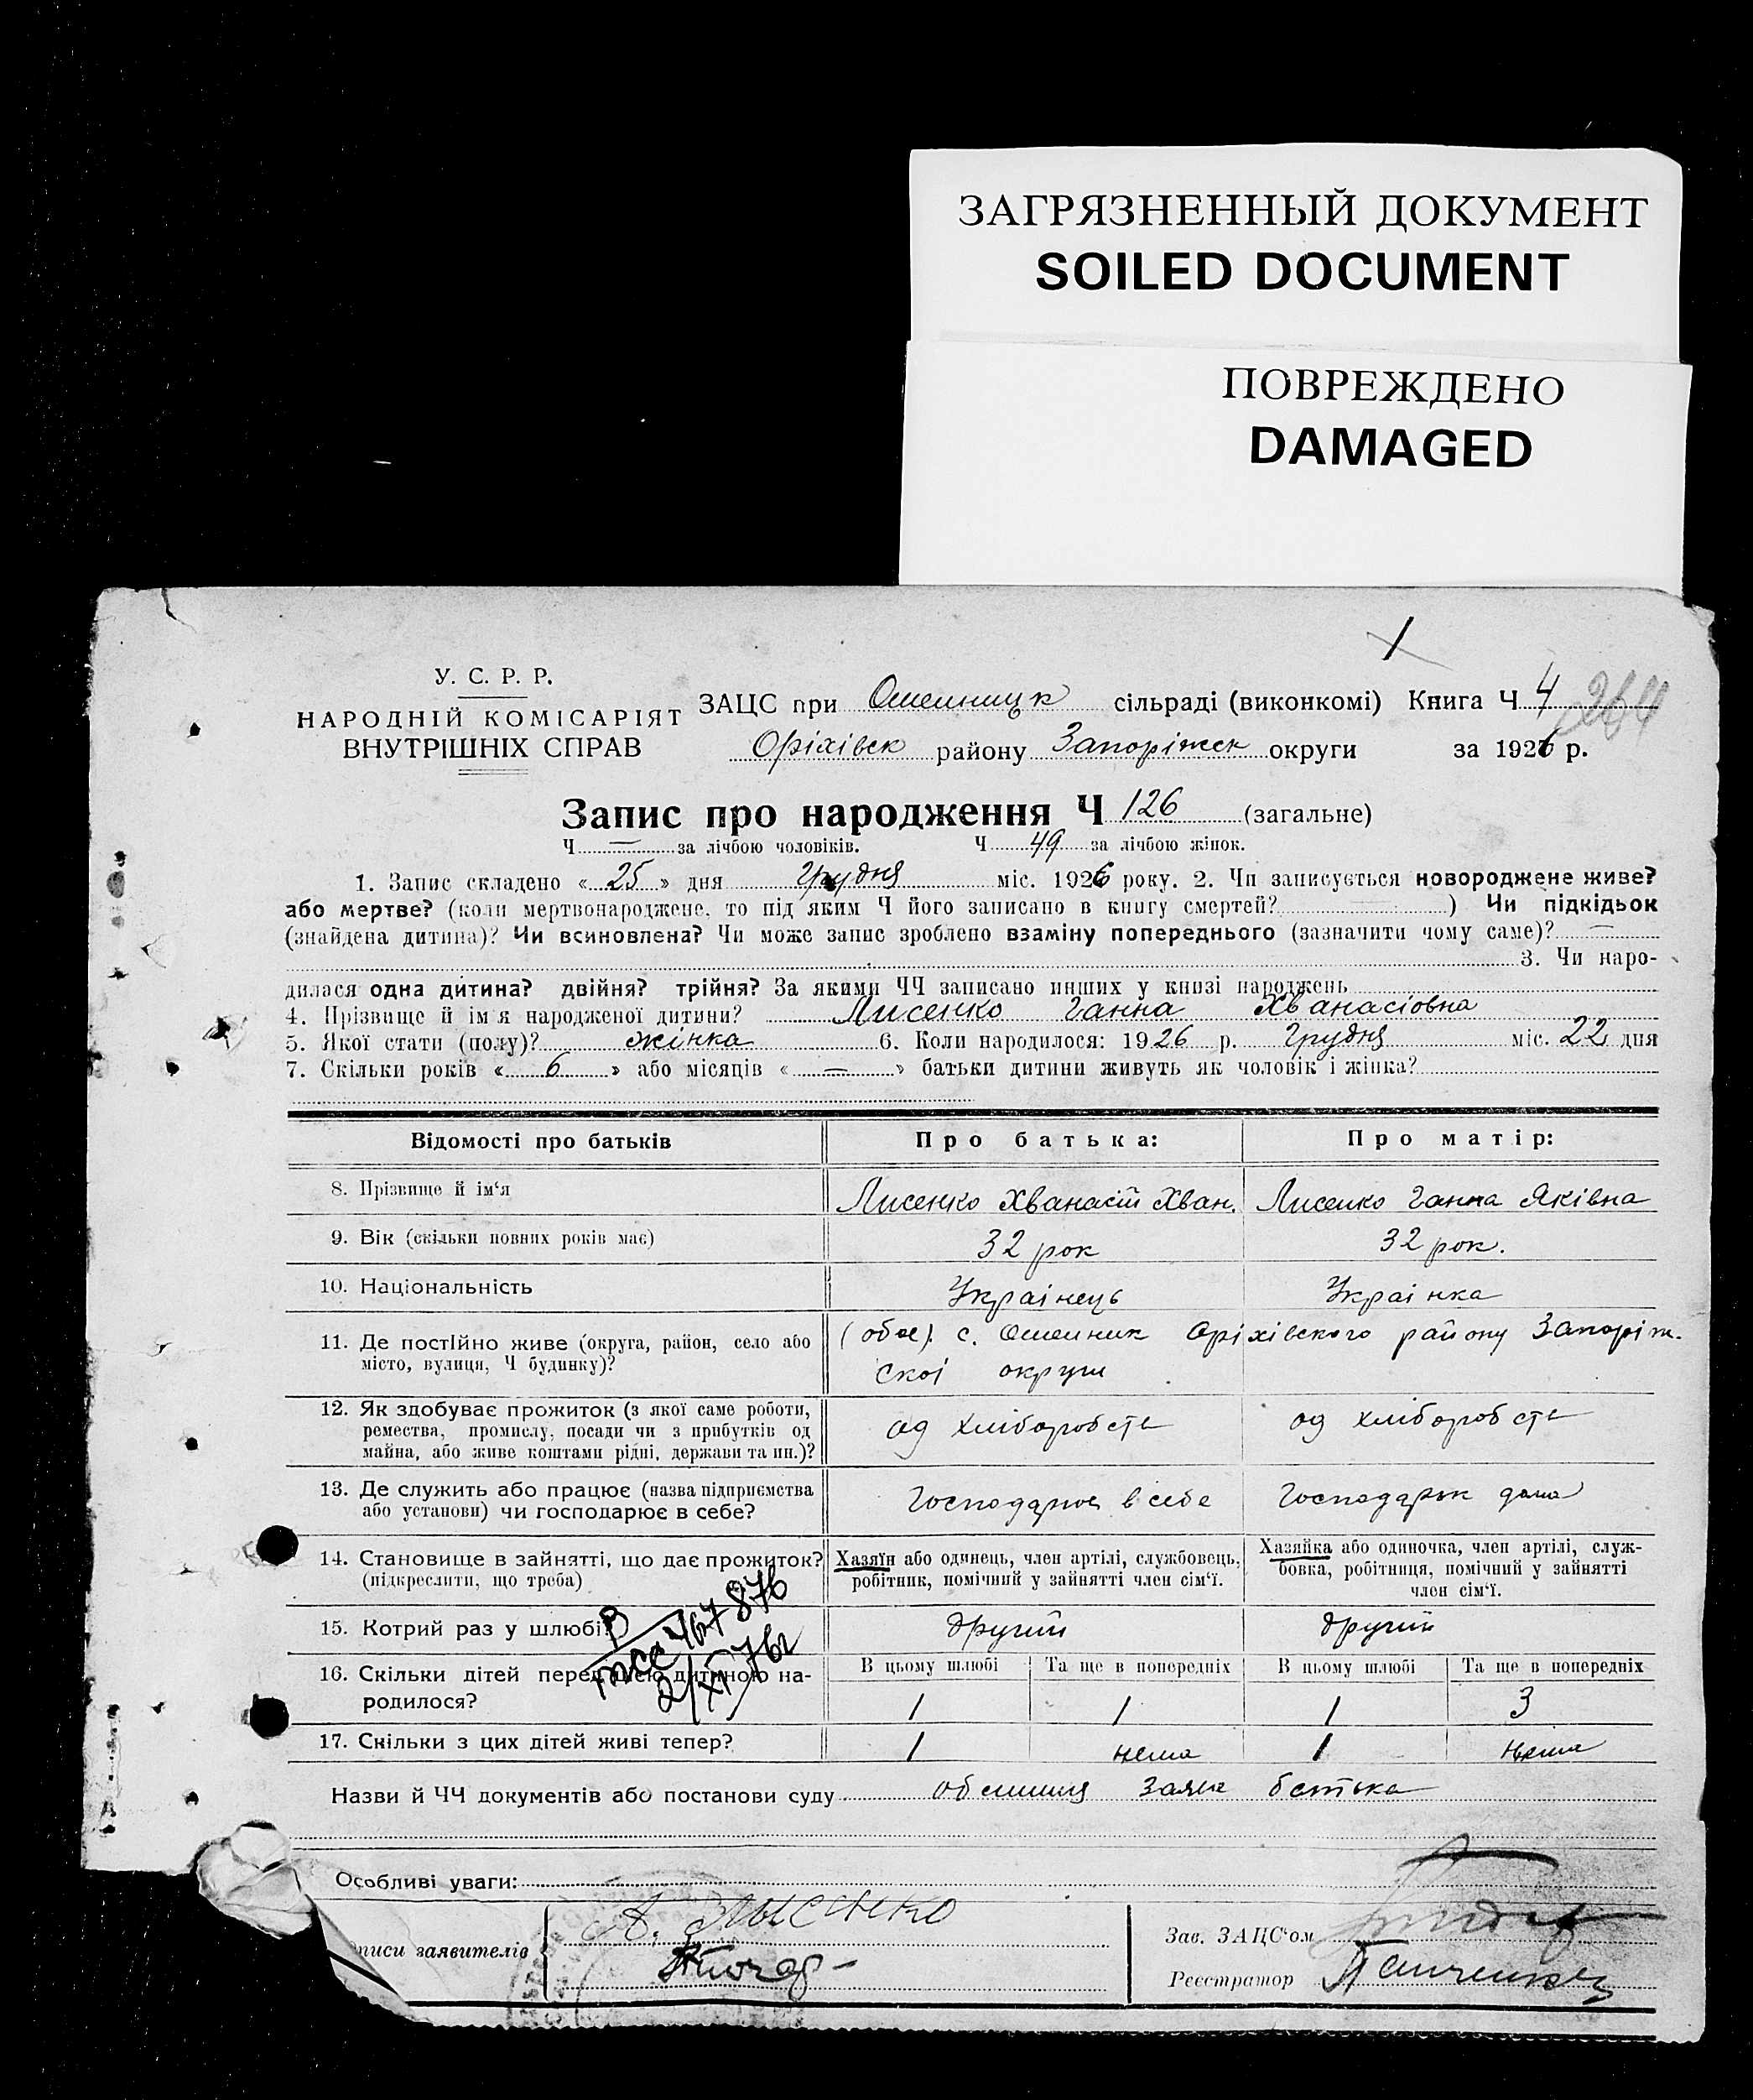 ЗАГРЯЗНЕННЫЙ ДОКУМЕНТ
SOILED DOCUMENT
ПОВРЕЖДЕНО
DAMAGED
У. С. Р. Р.
НАРОДНІЙ КОМІСАРІЯТ
ВНУТРІШНІХ СПРАВ
ЗАЦС при Омельницк сільраді (виконкомі) Книга Ч 4 264
Оріхівск району Запоріжск округи за 1926 р.
Запис про народження Ч 126 (загальне)
Ч — за лічбою чоловіків. Ч 49 за лічбою жінок.
1. Запис складено « 25 » дня Грудня міс. 1926 року. 2. Чи записується новороджене живе?
або мертве? (коли мертвонароджене, то під яким Ч його записано в книгу смертей? ) Чи підкідьок
(знайдена дитина)? Чи всиновлена? Чи може запис зроблено взаміну попереднього (зазначити чому саме)? —
3. Чи наро-
дилася одна дитина? двійня? трійня? За якими ЧЧ записано инших у книзі народжень
4. Прізвище й імя народженої дитини? Лисенко Ганна Хванасіовна
5. Якої стати (полу)? жінка 6. Коли народилося: 1926 р. Грудня міс. 22 дня
7. Скільки років « 6 » або місяців « — » батьки дитини живуть як чоловік і жінка?
Відомості про батьків Про батька: Про матір:
8. Прізвище й ім'я Лисенко Хванасій Хван. Лисенко Ганна Яківна
9. Вік (скільки повних років має) 32 рок 32 рок.
10. Національність Украінець Украінка
11. Де постійно живе (округа, район, село або місто, вулиця, Ч будинку)? (обоє) с. Омельник Оріхівского району Запоріж.
скоі округи
12. Як здобуває прожиток (з якої саме роботи, ремества, промислу, посади чи з прибутків од майна, або живе коштами рідні, держави та ин.)? од хліборобств од хліборобств
13. Де служить або працює (назва підприємства або установи) чи господарює в себе? Господарює в себе Господарює дома
14. Становище в зайнятті, що дає прожиток? (підкреслити, що треба)
Хазяїн або одинець, член артілі, службовець, робітник, помічний у зайнятті член сім'ї.
Хазяйка або одиночка, член артілі, служ-
бовка, робітниця, помічний у зайнятті
член сім'ї.
15. Котрий раз у шлюбі? другий другий
16. Скільки дітей перед цією дитиною на-
родилося?
В цьому шлюбі Та ще в попередніх В цьому шлюбі Та ще в попередніх
1 1 1 3
17. Скільки з цих дітей живі тепер? 1 нема 1 нема
Назви й ЧЧ документів або постанови суду заяви батька
Особливі уваги:
писи заявителів А. Лысенко
Зав. ЗАЦС'ом
Реєстратор Панченко